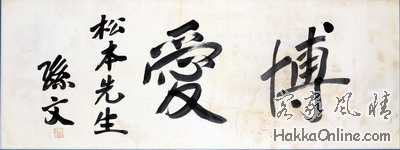 博愛
松本先生
孫文
客家風情
HakkaOnline.com